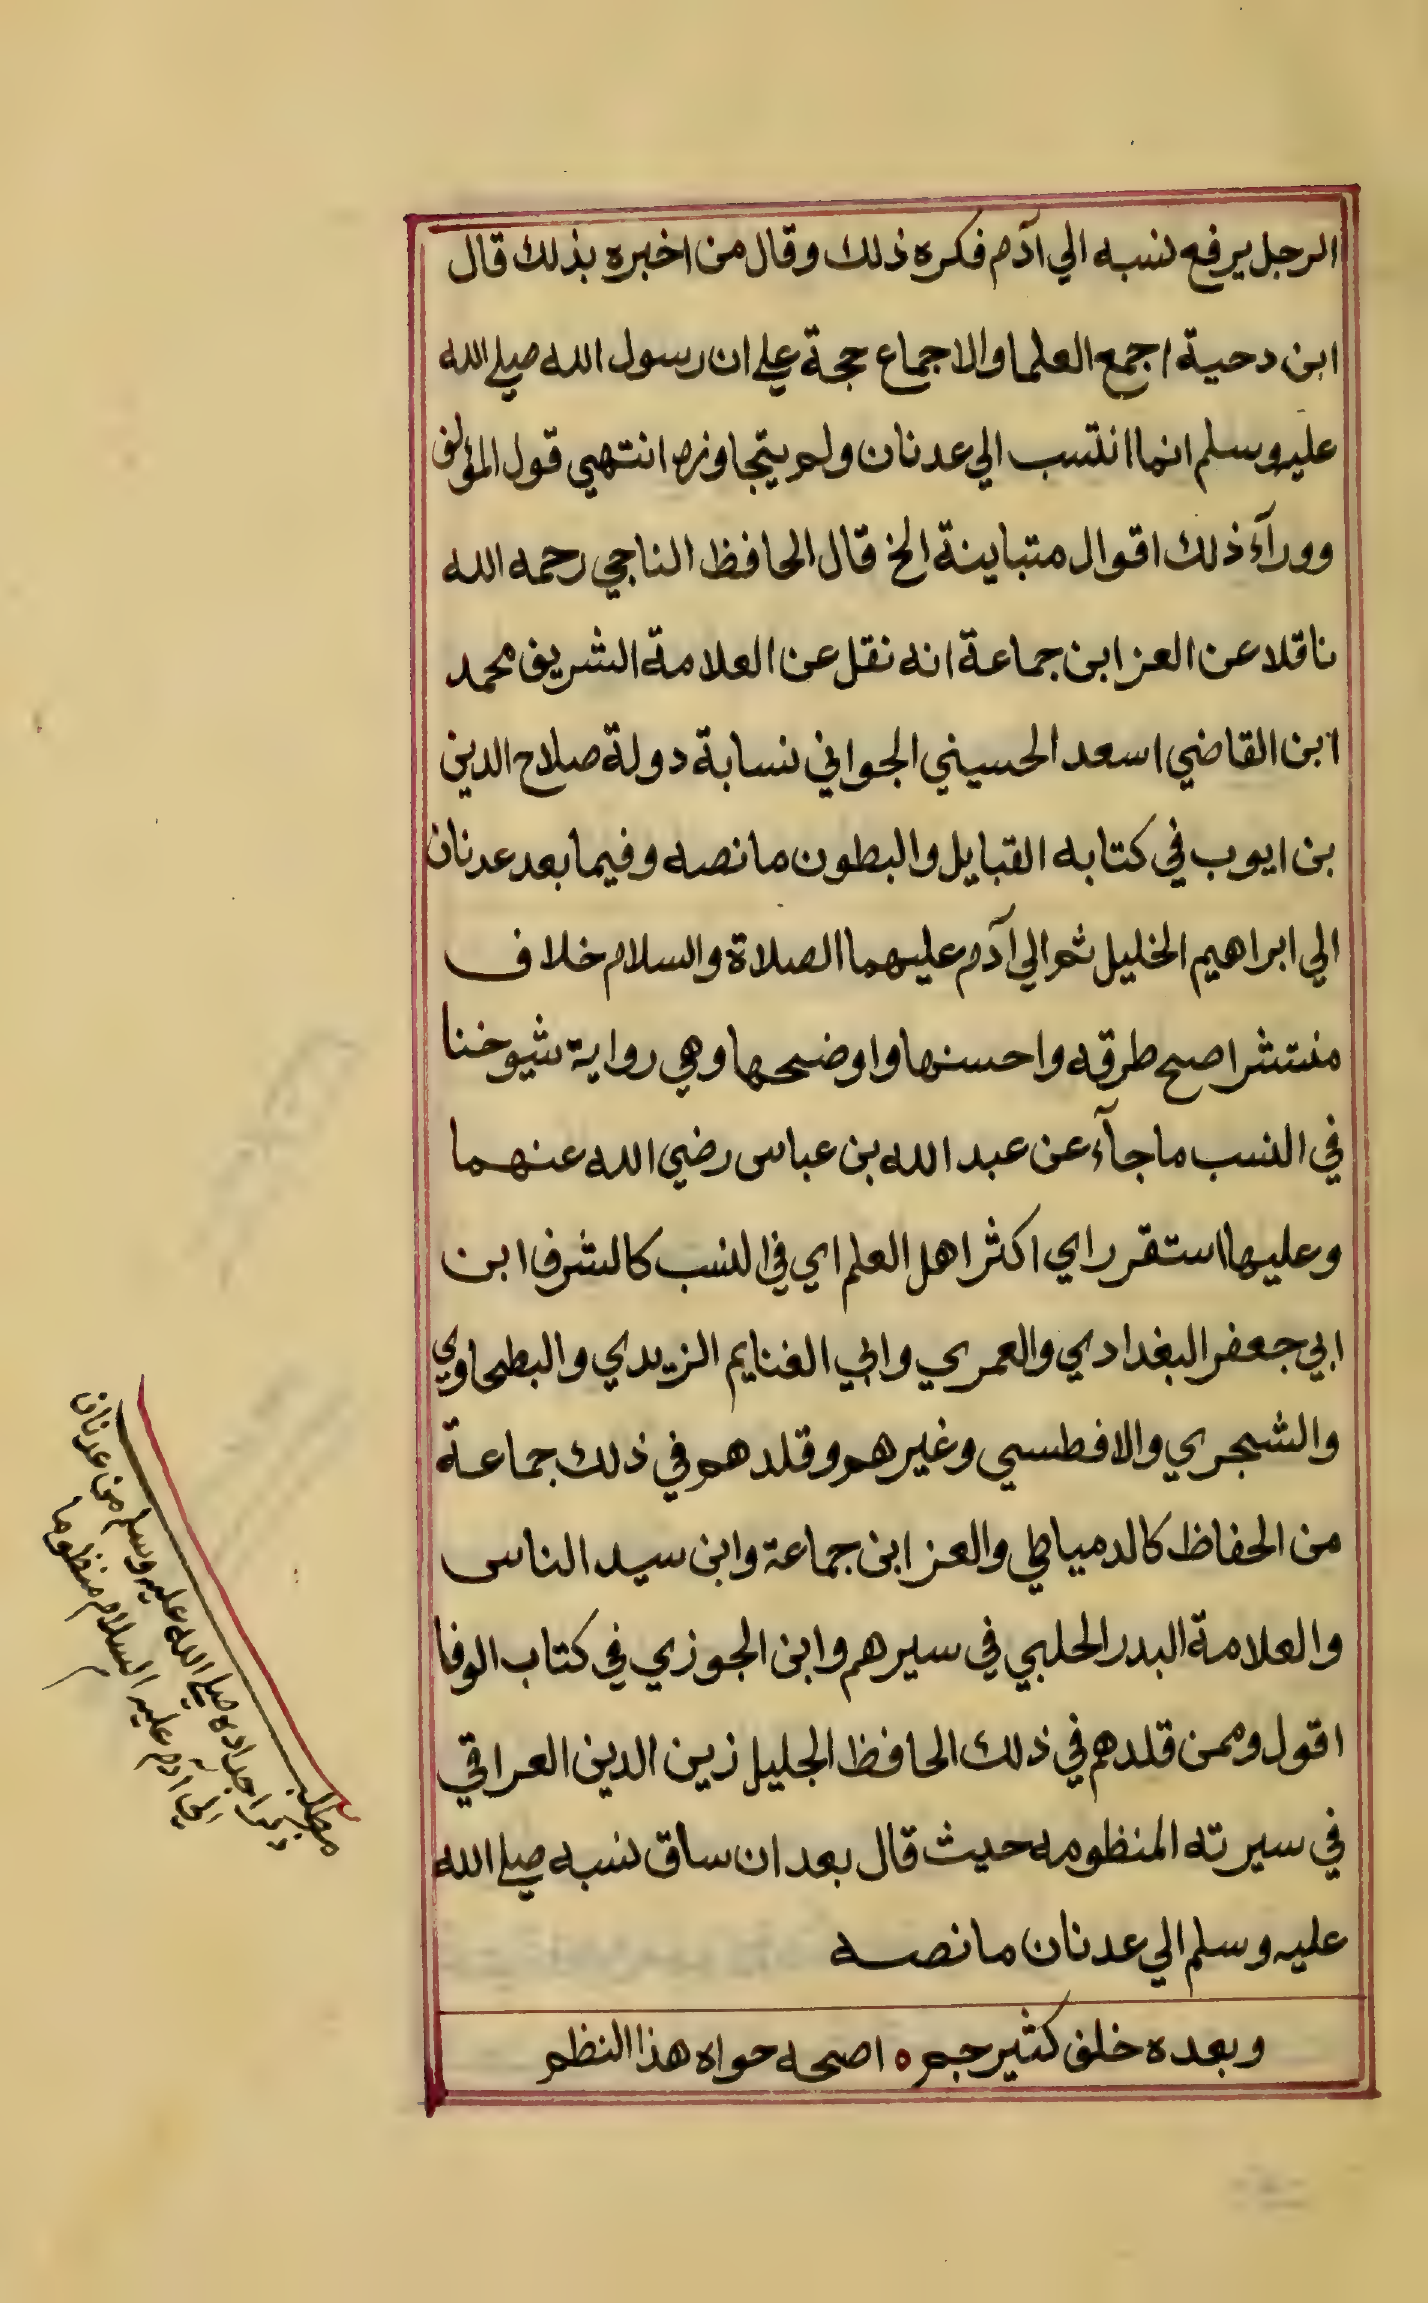 الرجل يرفع نسبه الي آدم فكره ذلك وقال من اخبره بذلك قال
ابن دحية اجمع العلما والاجماع حجة علي ان رسول الله صلي الله
عليه وسلم انما انتسب الي عدنان ولم يتجاوزه انتهي قول المؤلف
وورآء ذلك اقوال متباينة الخ قال الحافظ الناجي رحمه الله
ناقلا عن العز ابن جماعة انه نقل عن العلامة الشريف محمد
ابن القاضي اسعد الحسيني الجواني نسابة دولة صلاح الدين
بن ايوب في كتابه القبايل والبطون مانصه وفيما بعد عدنان
الي ابراهيم الخليل ثم الي آدم عليهما الصلاة والسلام خلاف
منتشر اصح طرقه واحسنها واوضحها وهي رواية شيوخنا
في النسب ماجآء عن عبد الله بن عباس رضي الله عنهما
وعليها استقر راي اكثر اهل العلم اي في النسب كالشرف ابن
ابي جعفر البغدادي والعمري وابي الغنايم الزيدي والبطحاوي
والشجري والافطسي وغيرهم وقلدهم في ذلك جماعة
من الحفاظ كالدمياطي والعز ابن جماعة وابن سيد الناس
والعلامة البدر الحلبي في سيرهم وابن الجوزي في كتاب الوفا
اقول وممن قلدهم في ذلك الحافظ الجليل زين الدين العراقي
في سيرته المنظومه حيث قال بعد ان ساق نسبه صلي الله
عليه وسلم الي عدنان مانصه
وبعده خلف كثير جم ه اصحه حواه هذا النظم
مطلب
ذكر اجداده صلي الله عليه وسلم من عدنان
الي آدم عليه السلام منظوما